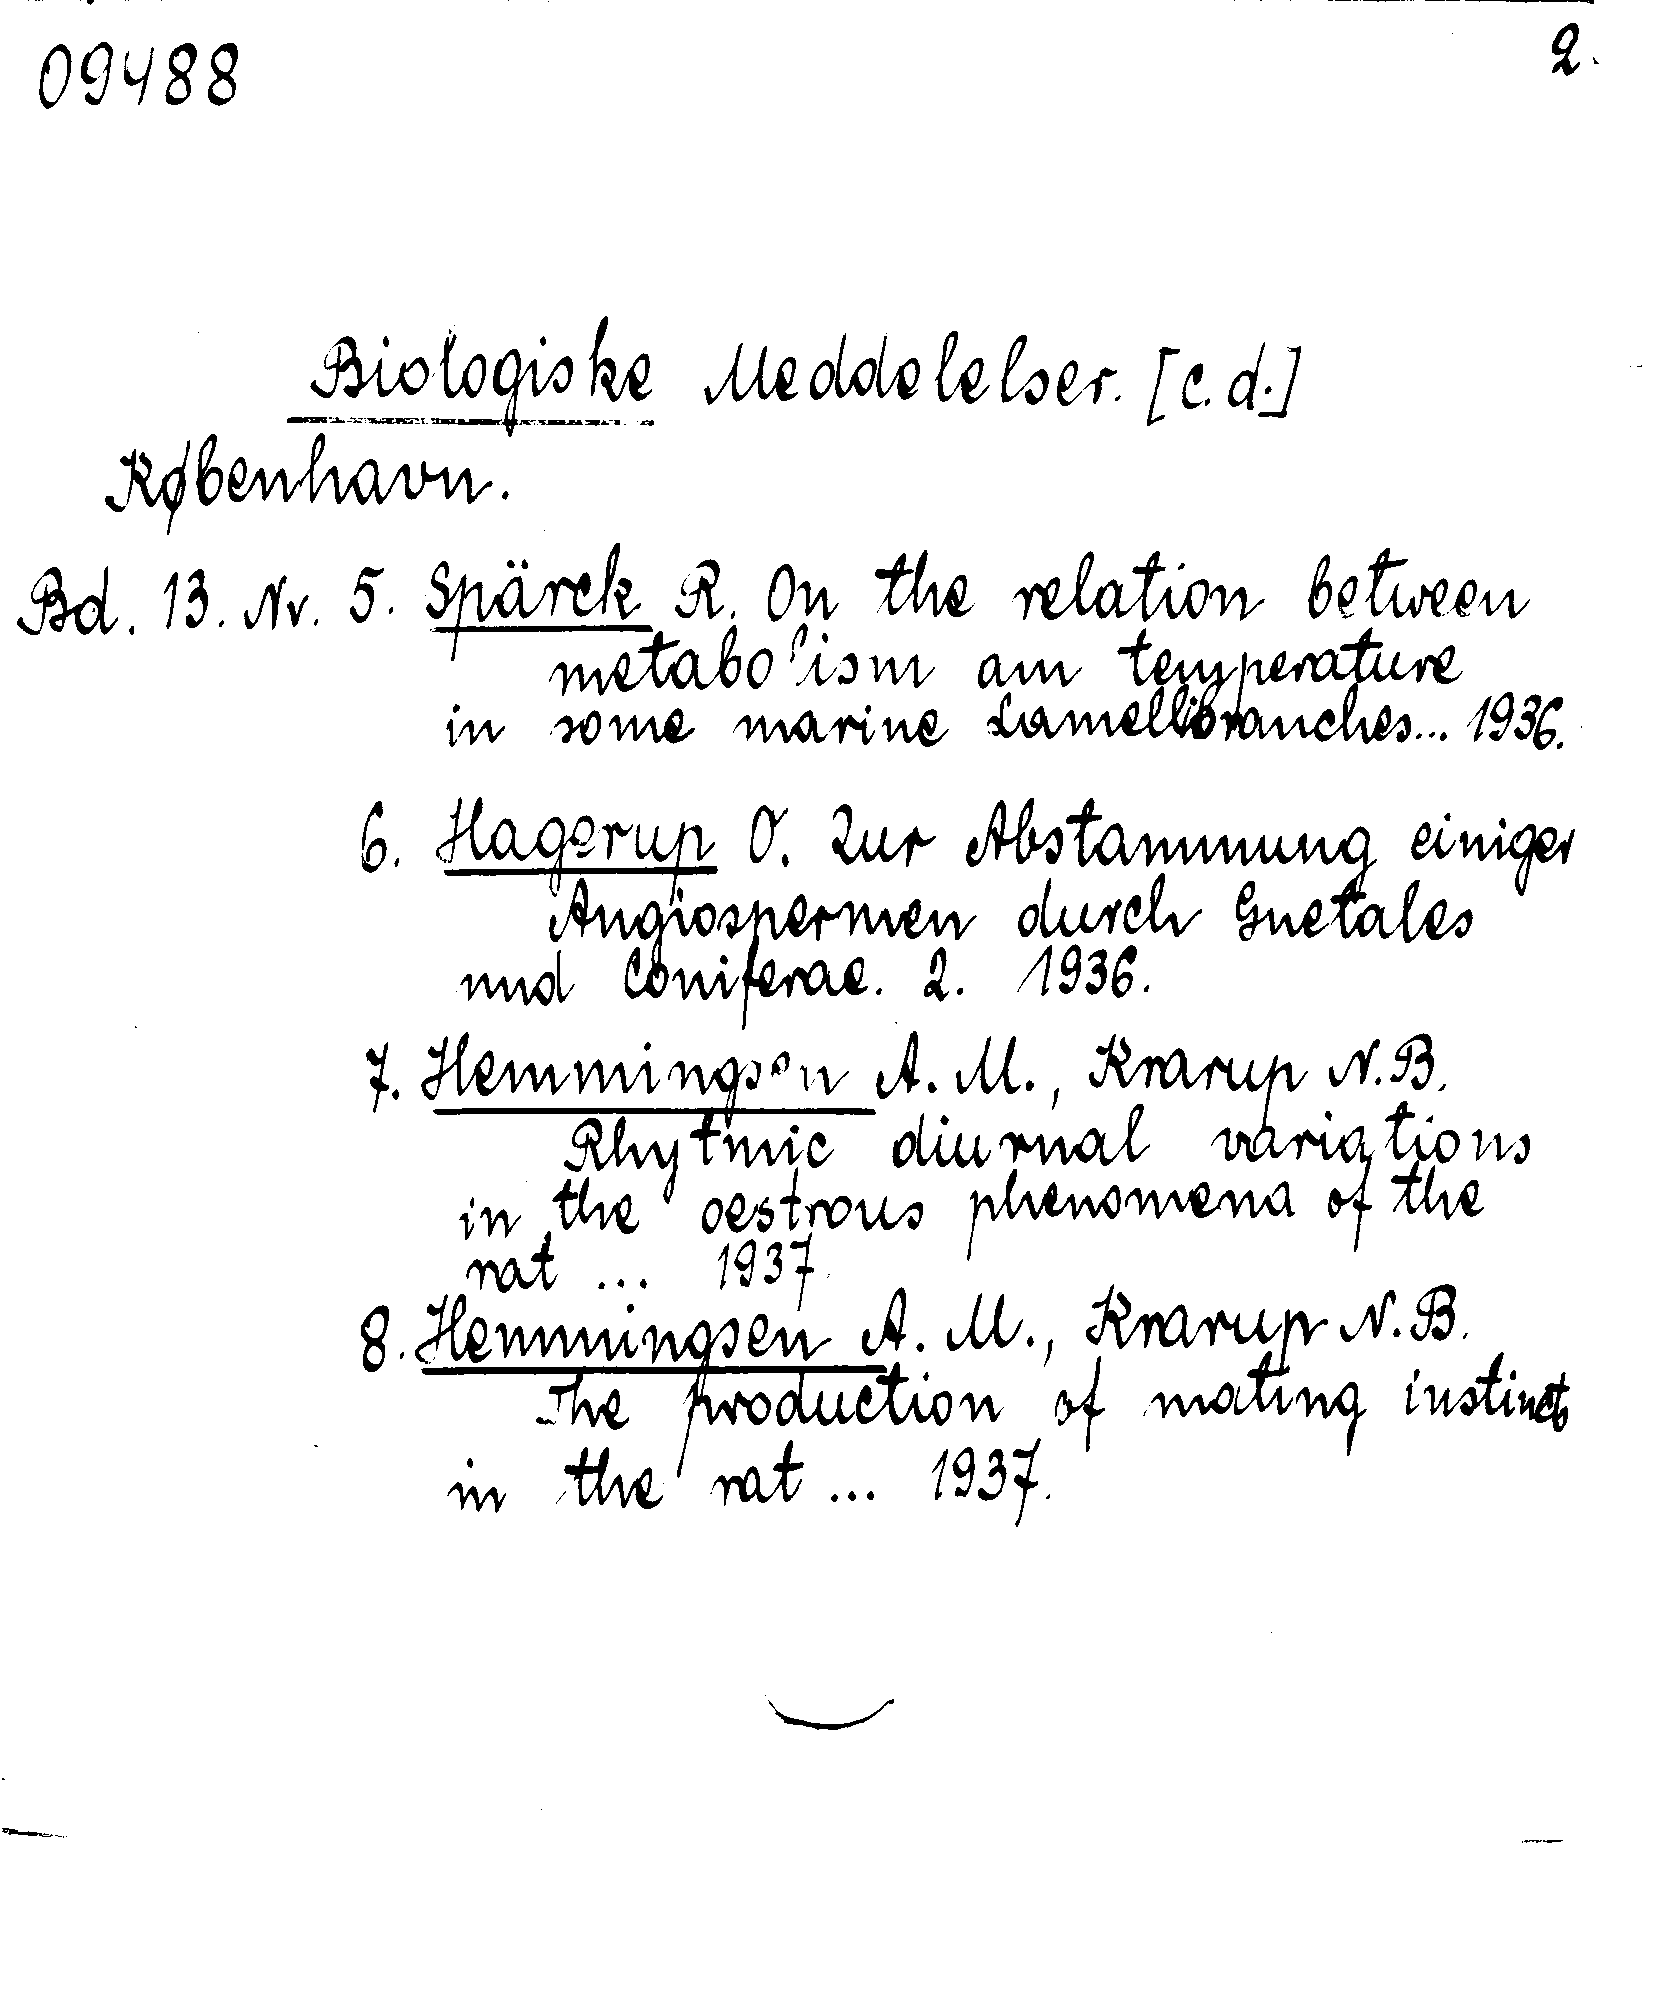 09488
2.
Biologiske Meddelelser. [c.d.]
København.
Bd. 13. Nr. 5. Spärck R. On the relation between
metabolism am temperature
in some marine Lamellibranches... 1936.
6. Hagerup O. Zur Abstammung einiger
Angiospermen durch Gnetales
und Coniferae. 2. 1936.
7. Hemmingsen A. M., Krarup N.B.
Rhytmic diurnal variations
in the oestrous phenomena of the
rat ... 1937.
8. Hemmingsen A. M., Krarup N.B.
The production of mating instincts
in the rat ... 1937.